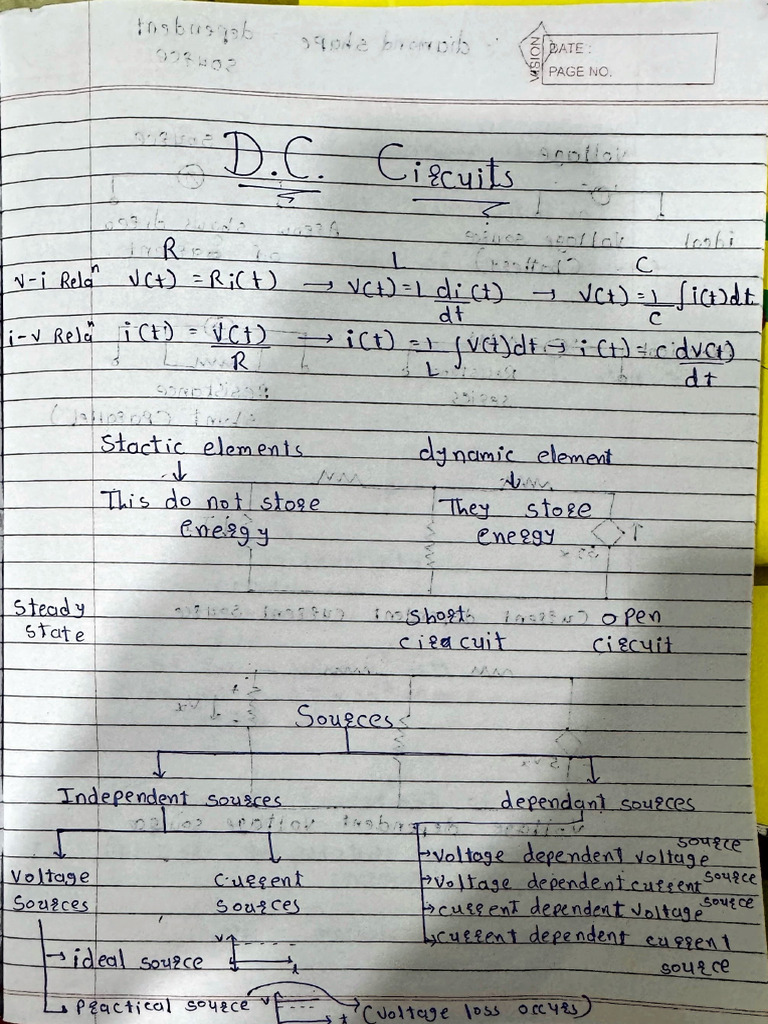 VISION
DATE :
PAGE NO.
D.C. Circuits
R L C
v-i Relaⁿ v(t) = Ri(t) → v(t) = L di(t)/dt → v(t) = 1/C ∫i(t)dt
i-v Relaⁿ i(t) = v(t)/R → i(t) = 1/L ∫v(t)dt → i(t) = C dv(t)/dt
Stactic elements dynamic element
↓ ↓
This do not store They store
energy energy
Steady short open
state ciracuit circuit
Sources
Independent sources dependant sources
Voltage current
Sources sources
→ voltage dependent voltage source
→ voltage dependent current source
→ current dependent voltage source
→ current dependent current
source
→ ideal source v t
→ Practical source v t (voltage loss occurs)